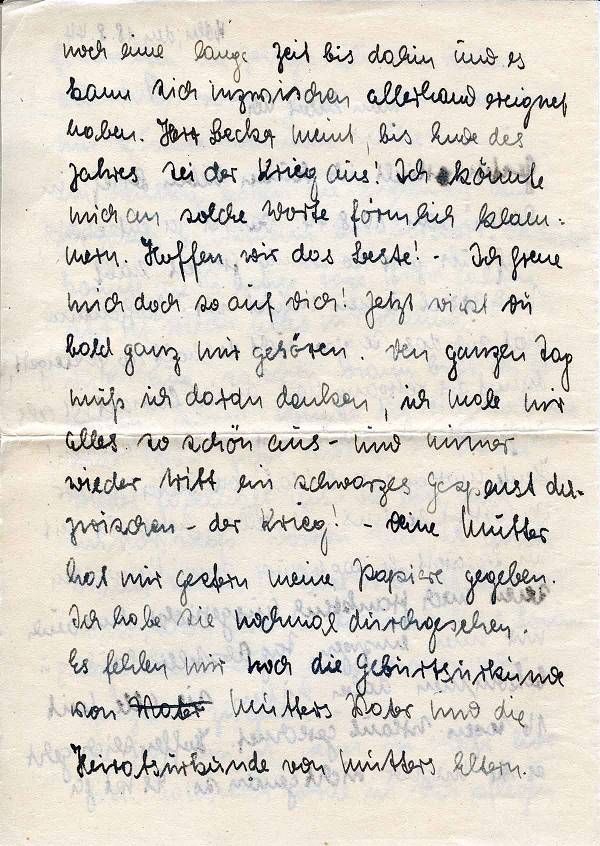 noch eine lange Zeit bis dahin und es
kann sich inzwischen allerhand ereignet
haben. Herr Becker meint, bis Ende des
Jahres sei der Krieg aus! Ich könnte
mich an solche Worte förmlich klam-
mern. Hoffen wir das Beste! - Ich freue
mich doch so auf Dich! Jetzt wirst Du
bald ganz mir gehören. Den ganzen Tag
muß ich daran denken, ich male mir
alles so schön aus - und immer
wieder tritt ein schwarzes Gespenst da-
zwischen - der Krieg! - Deine Mutter
hat mir gestern meine Papiere gegeben.
Ich habe sie nochmal durchgesehen.
Es fehlen mir noch die Geburtsurkunde
von Mutters Vater und die
Heiratsurkunde von Mutters Eltern.